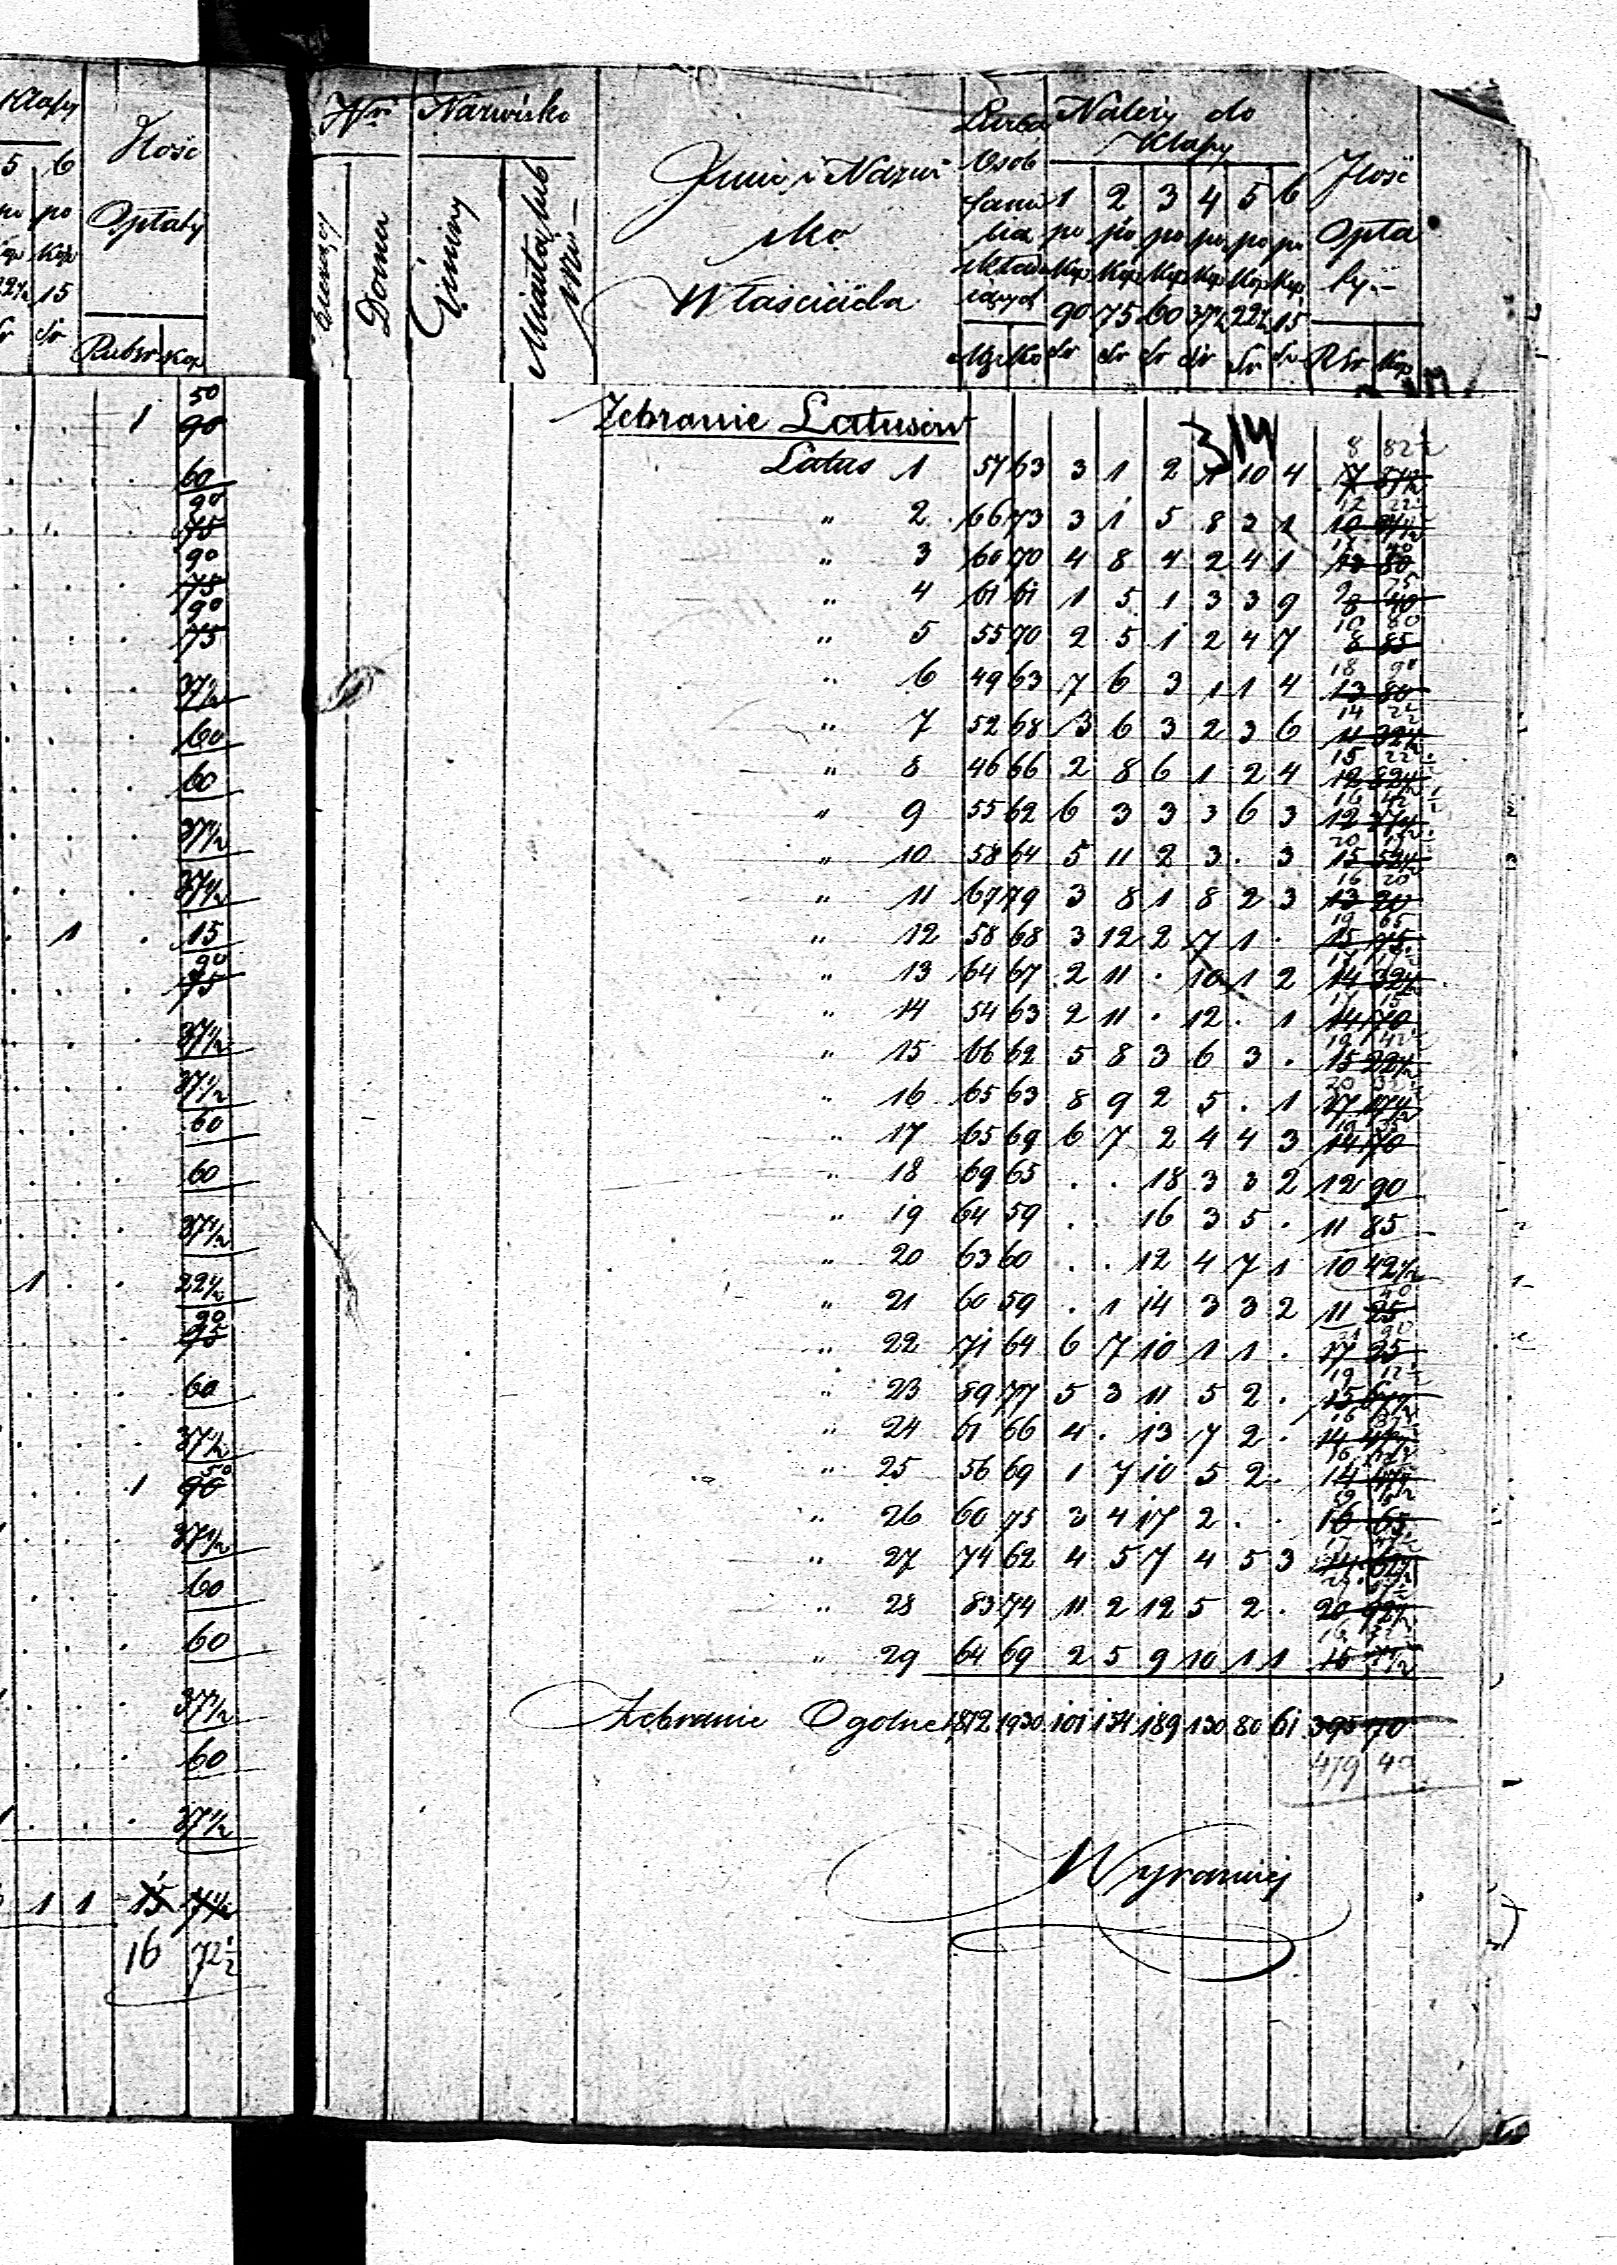 Klassy
5 6
po po
Kop Kop
22½ 15
Sr Sr
Ilość
Opłaty
Rubsr Kop
50
1 90
60
90
75
90
75
90
75
37½
60
60
37½
37½
1 15
90
75
37½
37½
60
60
37½
1 22½
90
75
60
37½
50
1 90
37½
60
60
37½
60
37½
1 1 15 77½
16 72½
Nr Nazwisko
Domu
Gminy
Miasta lub
Wsi
Imie i Nazwi
sko
Właściciela
Liczba
Osób
familia
składa
iących
Mę Ko
Należy do
Klassy
1 2 3 4 5 6
po po po po po po
Kop Kop Kop Kop Kop Kop
90 75 60 37½ 22½ 15
Sr Sr Sr Sr Sr Sr
Ilość
Opła
ty
RSr Kop
314
Zebranie Latusów
8 82½
Latus 1 57 63 3 1 2 7 10 4 7 87½
12 22½
" 2 66 73 3 1 5 8 3 1 10
" 3 60 70 4 8 4 2 4 1 13 80
9 75
" 4 61 61 1 5 1 3 3 9 8 40
10 80
" 5 55 70 2 5 1 2 4 7 8 85
18 90
" 6 49 63 7 6 3 1 1 4 13 80
14 22½
" 7 52 68 3 6 3 2 3 6 11 32½
15 22½
" 8 46 66 2 8 6 1 2 4 12 82½
16 42½
" 9 55 62 6 3 3 3 6 3 12 37½
20
" 10 58 64 5 11 2 3 . 3 15 52½
16 20
" 11 67 79 3 8 1 8 2 3 13 20
19 65
" 12 58 68 3 12 2 7 1 . 15 75
17
" 13 64 67 2 11 . 10 1 2 14 32½
17 15
" 14 54 63 2 11 . 12 . 1 14 70
19 42½
" 15 66 62 5 8 3 6 3 . 15 22½
20 32½
" 16 65 63 8 9 2 5 . 1 17 17½
" 17 65 69 6 7 2 4 4 3 14 70
" 18 69 65 . . 18 3 3 2 12 90
" 19 64 59 . . 16 3 5 . 11 85
" 20 63 60 . . 12 4 7 1 10 42½
40
" 21 60 59 . 1 14 3 3 2 11 25
21 90
" 22 71 64 6 7 10 1 1 . 17 25
19 12½
" 23 59 77 5 3 11 5 2 . 15 67½
16 87½
" 24 61 66 4 . 13 7 2 . 14 47½
16
" 25 56 69 1 7 10 5 2 . 14 47½
" 26 60 75 3 4 17 2 . . 16 65
17 47½
" 27 74 62 4 5 7 4 5 3 14 62½
" 28 83 74 11 2 12 5 2 . 20 92½
16 72½
" 29 64 69 2 5 9 10 1 1 15 77½
Zebranie Ogólne 1812 1930 101 154 189 130 80 61 395 70
479 40